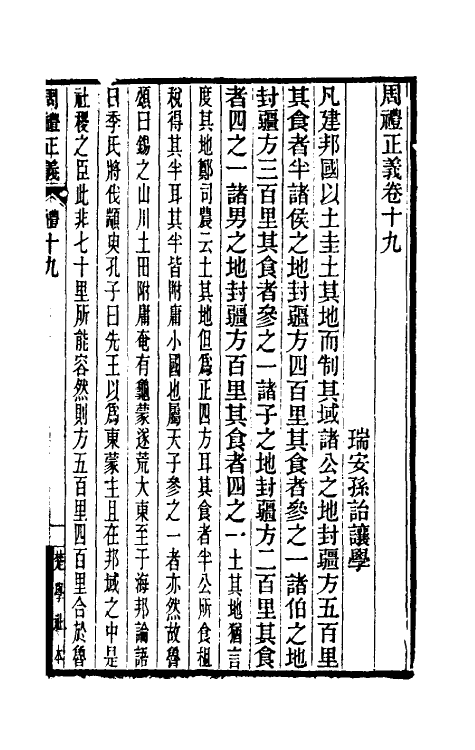 周禮正義卷十九
瑞安孫詒讓學
凡建邦國以土圭土其地而制其域諸公之地封疆方五百里
其食者半諸侯之地封疆方四百里其食者參之一諸伯之地
封疆方三百里其食者參之一諸子之地封疆方二百里其食
者四之一諸男之地封疆方百里其食者四之一土其地猶言
度其地鄭司農云土其地但爲正四方耳其食者半公所食租
稅得其半耳其半皆附庸小國也屬天子參之一者亦然故魯
頌曰錫之山川土田附庸奄有龜蒙遂荒大東至于海邦論語
曰季氏將伐顓臾孔子曰先王以爲東蒙主且在邦域之中是
社稷之臣此非七十里所能容然則方五百里四百里合於魯
周禮正義 禮十九 一 楚學社本